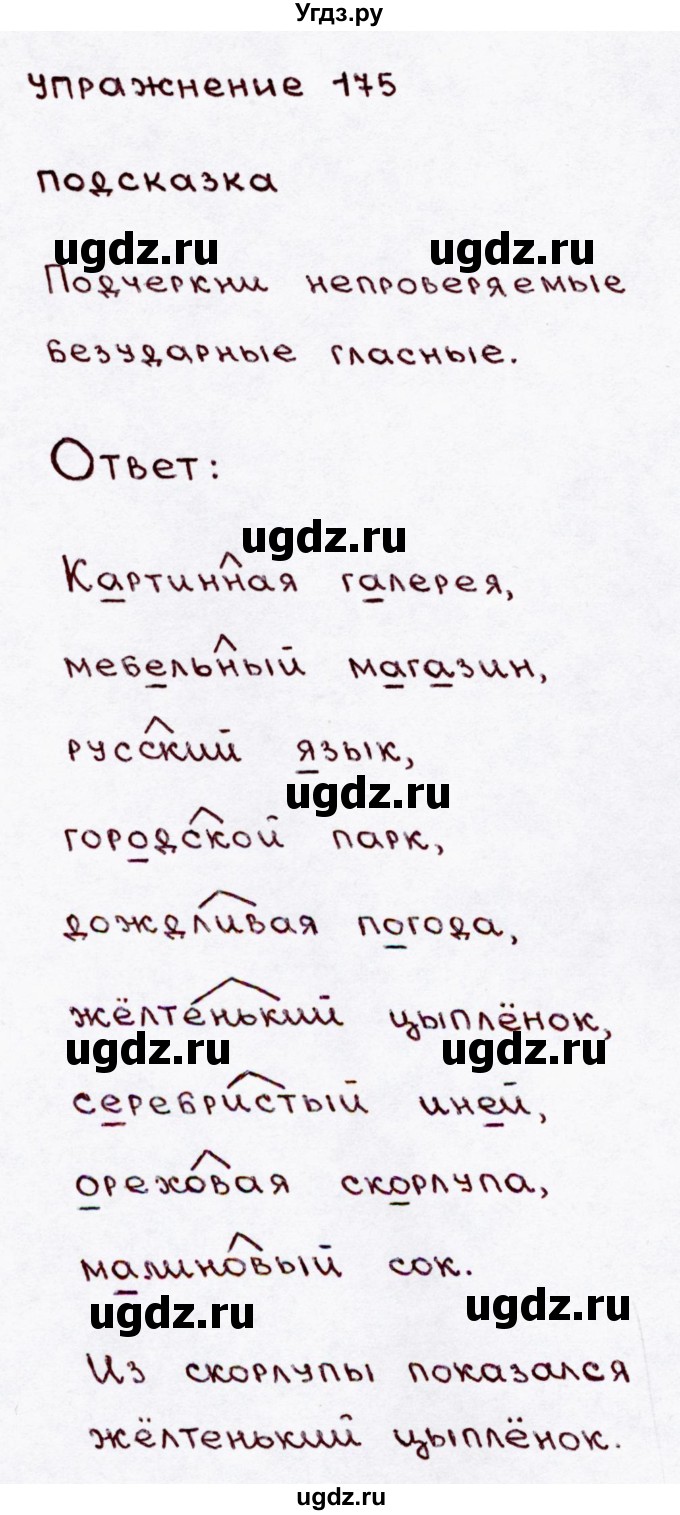 Угдз.ру
упражнение 175
подсказка
ugdz.ru ugdz.ru
Подчеркни непроверяемые
безударные гласные.
Ответ:
ugdz.ru
Картинная галерея,
мебельный магазин,
русский язык,
ugdz.ru
городской парк,
дождливая погода,
жёлтенький цыплёнок,
ugdz.ru ugdz.ru
серебристый иней,
ореховая скорлупа,
малиновый сок.
ugdz.ru ugdz.ru
Из скорлупы показался
жёлтенький цыплёнок.
ugdz.ru